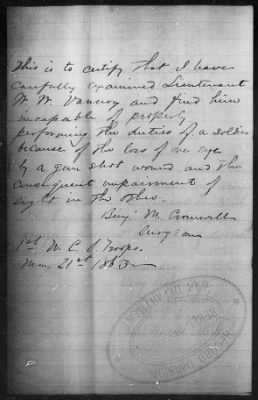 This is to certify that I have
carefully examined Lieutenant
W. W. Vannoy and find him
incapable of properly
performing the duties of a soldier
because of the loss of one eye
by a gun shot wound and the
consequent impairment of
sight in the other.
Benj. M. Cromwell
Surgeon
1st N. C. S. Troops.
May 21st 1863